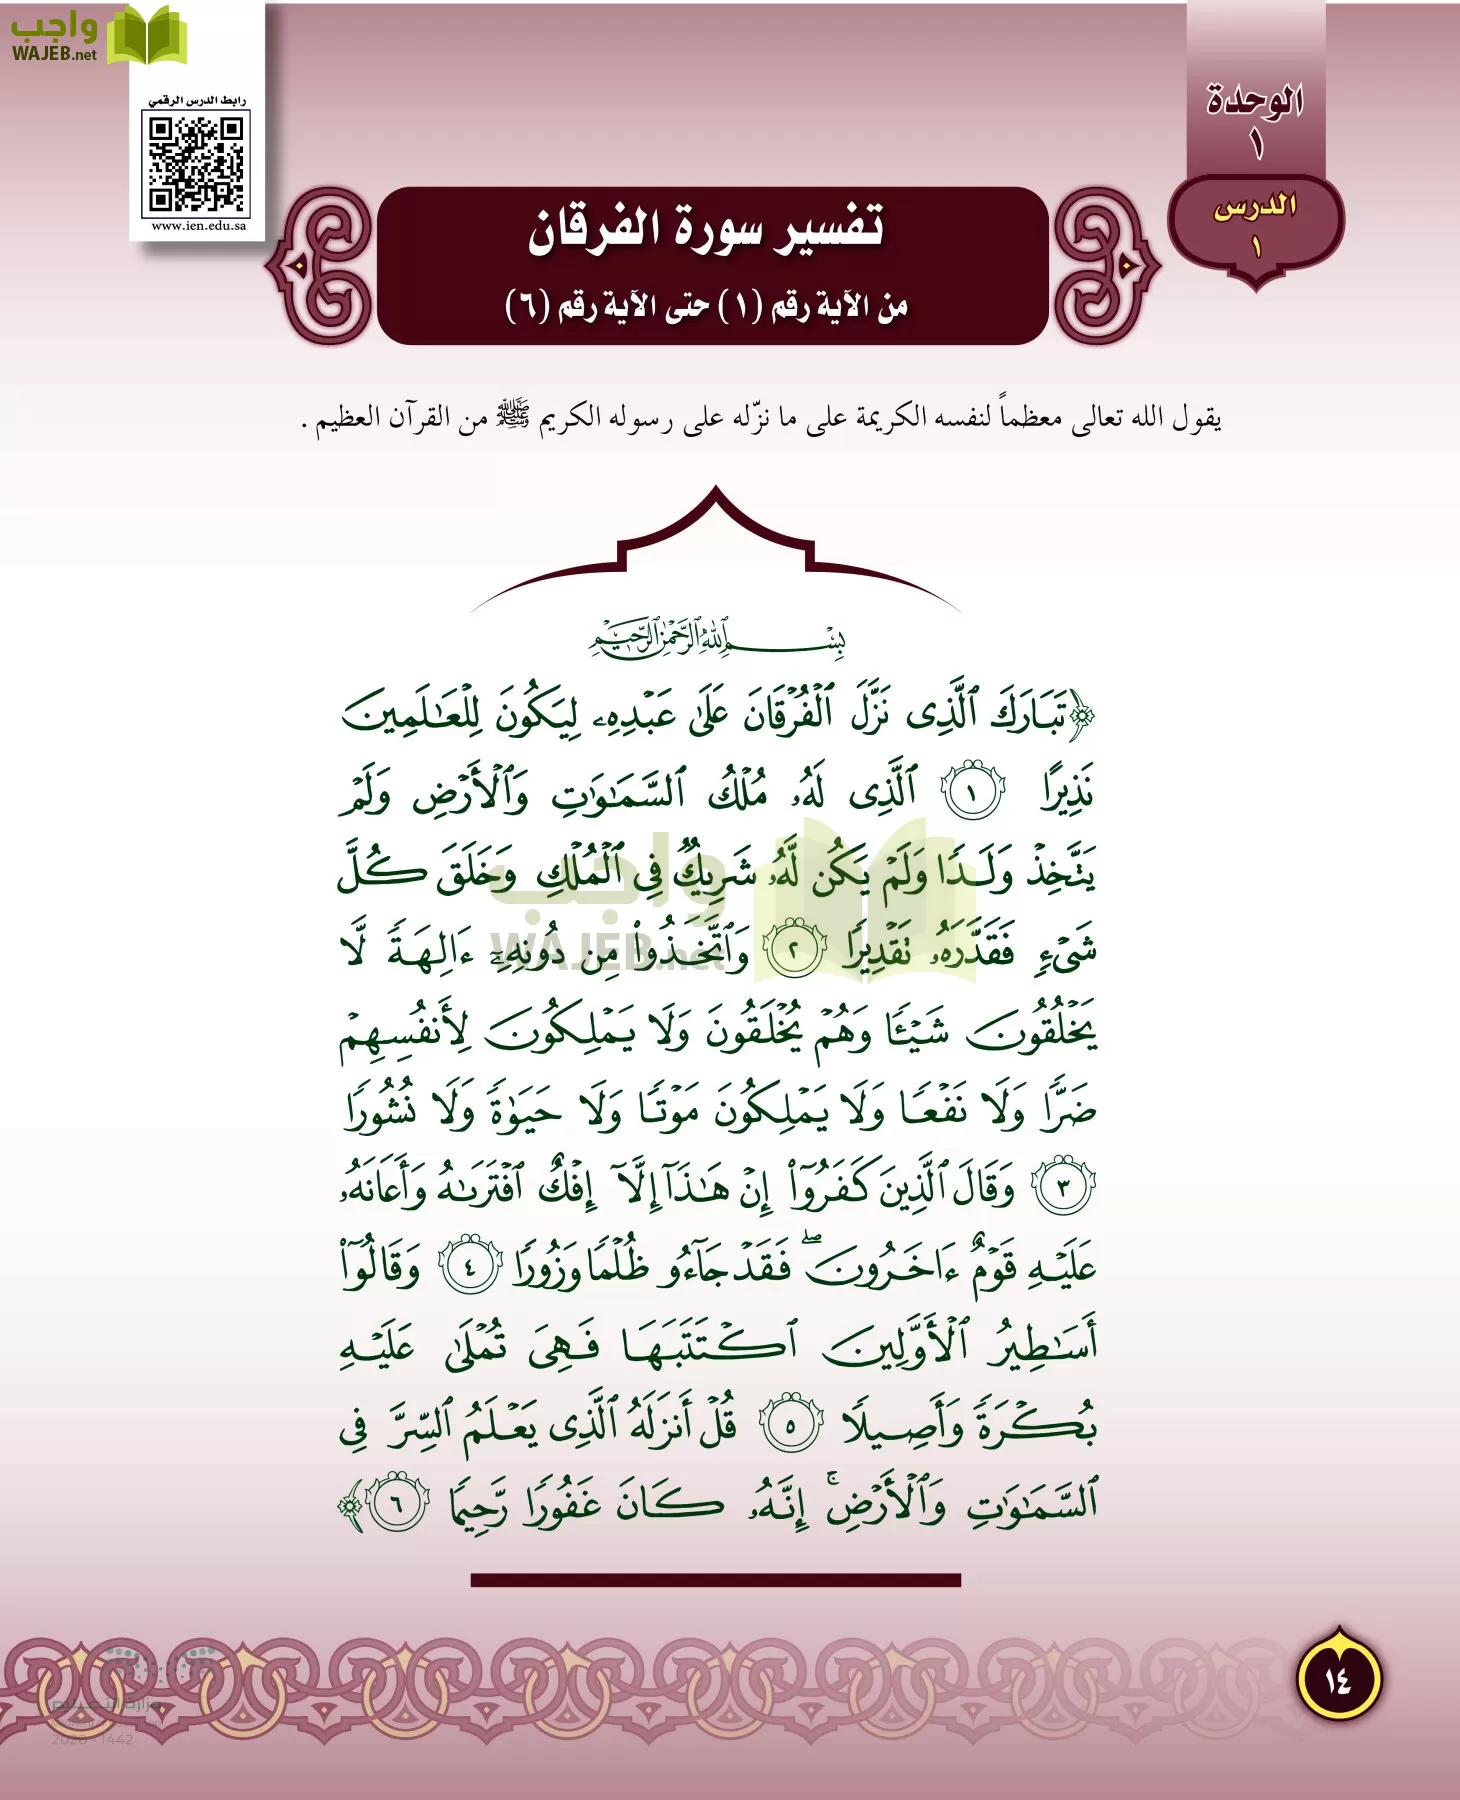 واجب
WAJEB.net
رابط الدرس الرقمي
www.ien.edu.sa
الوحدة
١
الدرس
١
تفسير سورة الفرقان
من الآية رقم (١) حتى الآية رقم (٦)
يقول الله تعالى معظماً لنفسه الكريمة على ما نزّله على رسوله الكريم ﷺ من القرآن العظيم .
بِسْمِ ٱللَّهِ ٱلرَّحْمَٰنِ ٱلرَّحِيمِ
﴿تَبَارَكَ ٱلَّذِى نَزَّلَ ٱلْفُرْقَانَ عَلَىٰ عَبْدِهِۦ لِيَكُونَ لِلْعَـٰلَمِينَ
نَذِيرًا ١ ٱلَّذِى لَهُۥ مُلْكُ ٱلسَّمَـٰوَٰتِ وَٱلْأَرْضِ وَلَمْ
يَتَّخِذْ وَلَدًا وَلَمْ يَكُن لَّهُۥ شَرِيكٌ فِى ٱلْمُلْكِ وَخَلَقَ كُلَّ
شَىْءٍ فَقَدَّرَهُۥ تَقْدِيرًا ٢ وَٱتَّخَذُوا۟ مِن دُونِهِۦٓ ءَالِهَةً لَّا
يَخْلُقُونَ شَيْـًٔا وَهُمْ يُخْلَقُونَ وَلَا يَمْلِكُونَ لِأَنفُسِهِمْ
ضَرًّا وَلَا نَفْعًا وَلَا يَمْلِكُونَ مَوْتًا وَلَا حَيَوٰةً وَلَا نُشُورًا
٣ وَقَالَ ٱلَّذِينَ كَفَرُوٓا۟ إِنْ هَـٰذَآ إِلَّآ إِفْكٌ ٱفْتَرَىٰهُ وَأَعَانَهُۥ
عَلَيْهِ قَوْمٌ ءَاخَرُونَ ۖ فَقَدْ جَآءُو ظُلْمًا وَزُورًا ٤ وَقَالُوٓا۟
أَسَـٰطِيرُ ٱلْأَوَّلِينَ ٱكْتَتَبَهَا فَهِىَ تُمْلَىٰ عَلَيْهِ
بُكْرَةً وَأَصِيلًا ٥ قُلْ أَنزَلَهُ ٱلَّذِى يَعْلَمُ ٱلسِّرَّ فِى
ٱلسَّمَـٰوَٰتِ وَٱلْأَرْضِ ۚ إِنَّهُۥ كَانَ غَفُورًا رَّحِيمًا ٦﴾
واجب
WAJEB.net
وزارة التعليم
2020 - 1442
١٤